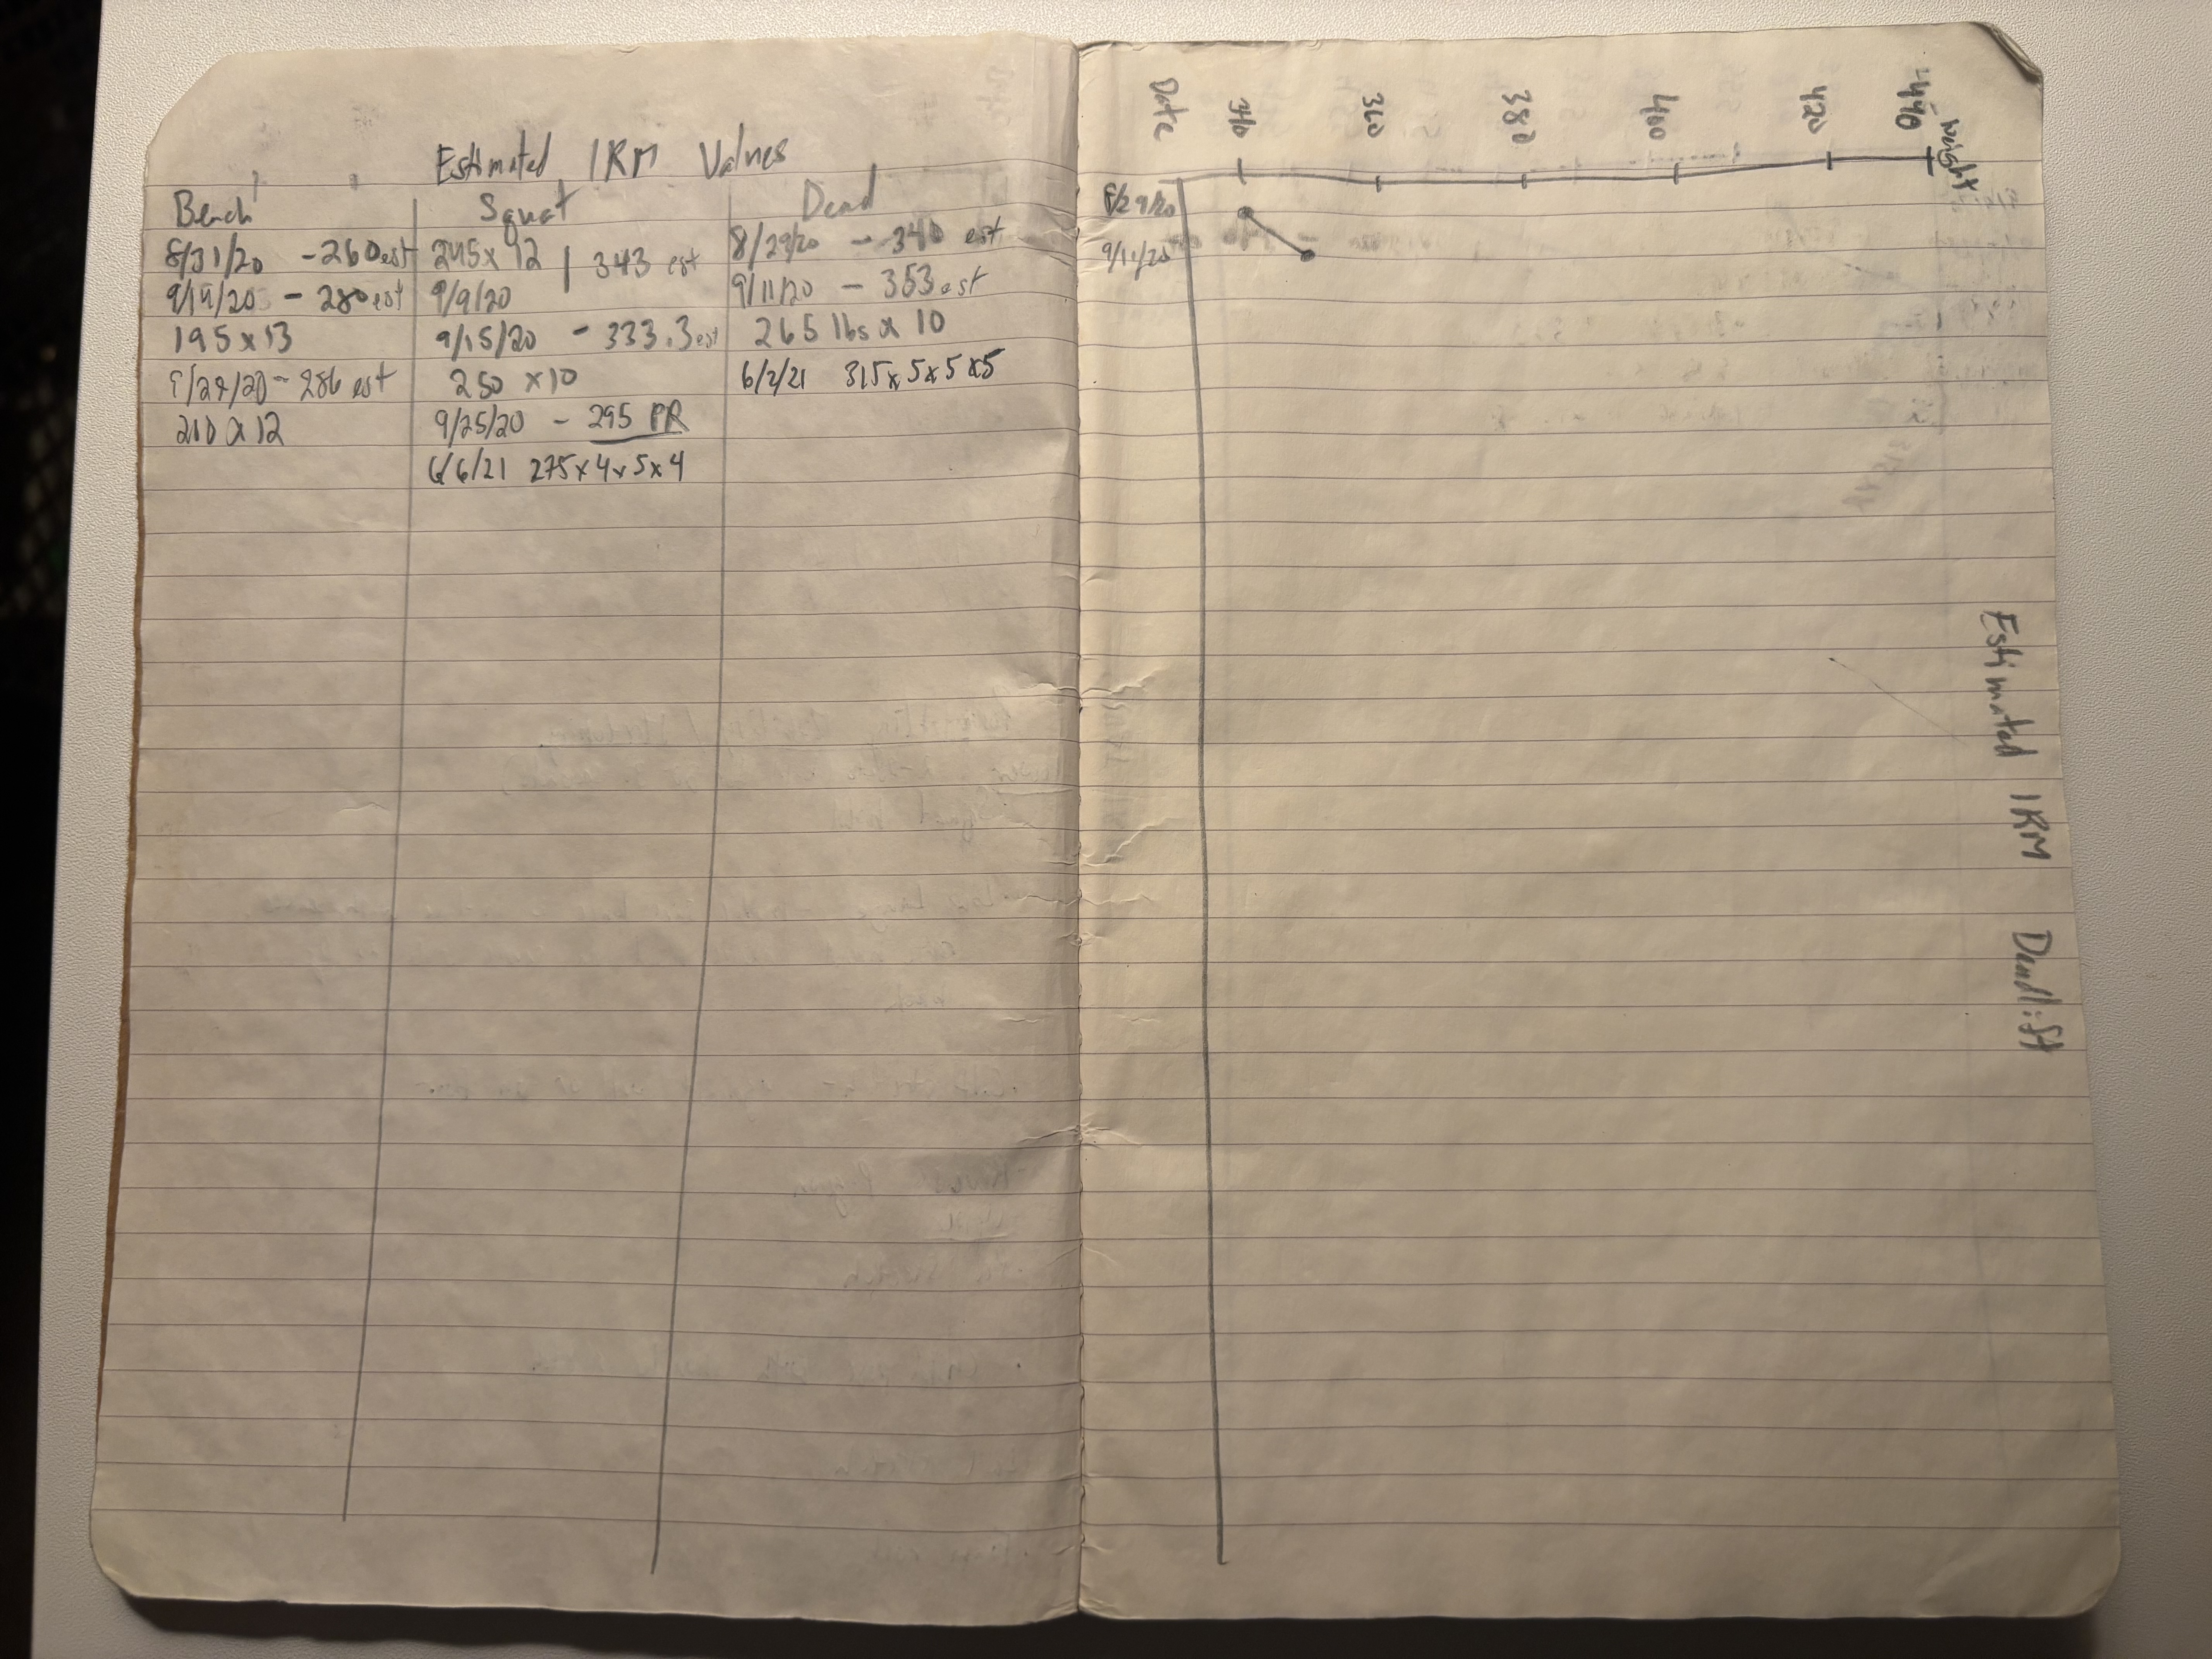 Estimated 1RM Values
Bench
8/31/20 - 260 est
9/14/20 - 280 est
195 x 13
9/24/20 - 286 est
210 x 12
Squat
245 x 12 | 343 est
9/9/20
9/15/20 - 333.3 est
250 x 10
9/25/20 - 295 PR
6/6/21 275 x 4 x 5 x 4
Dead
8/29/20 - 340 est
9/11/20 - 353 est
265 lbs x 10
6/2/21 315 x 5 x 5 x 5
Estimated 1RM Deadlift
Weight
440
420
400
380
360
340
Date
8/29/20
9/11/20